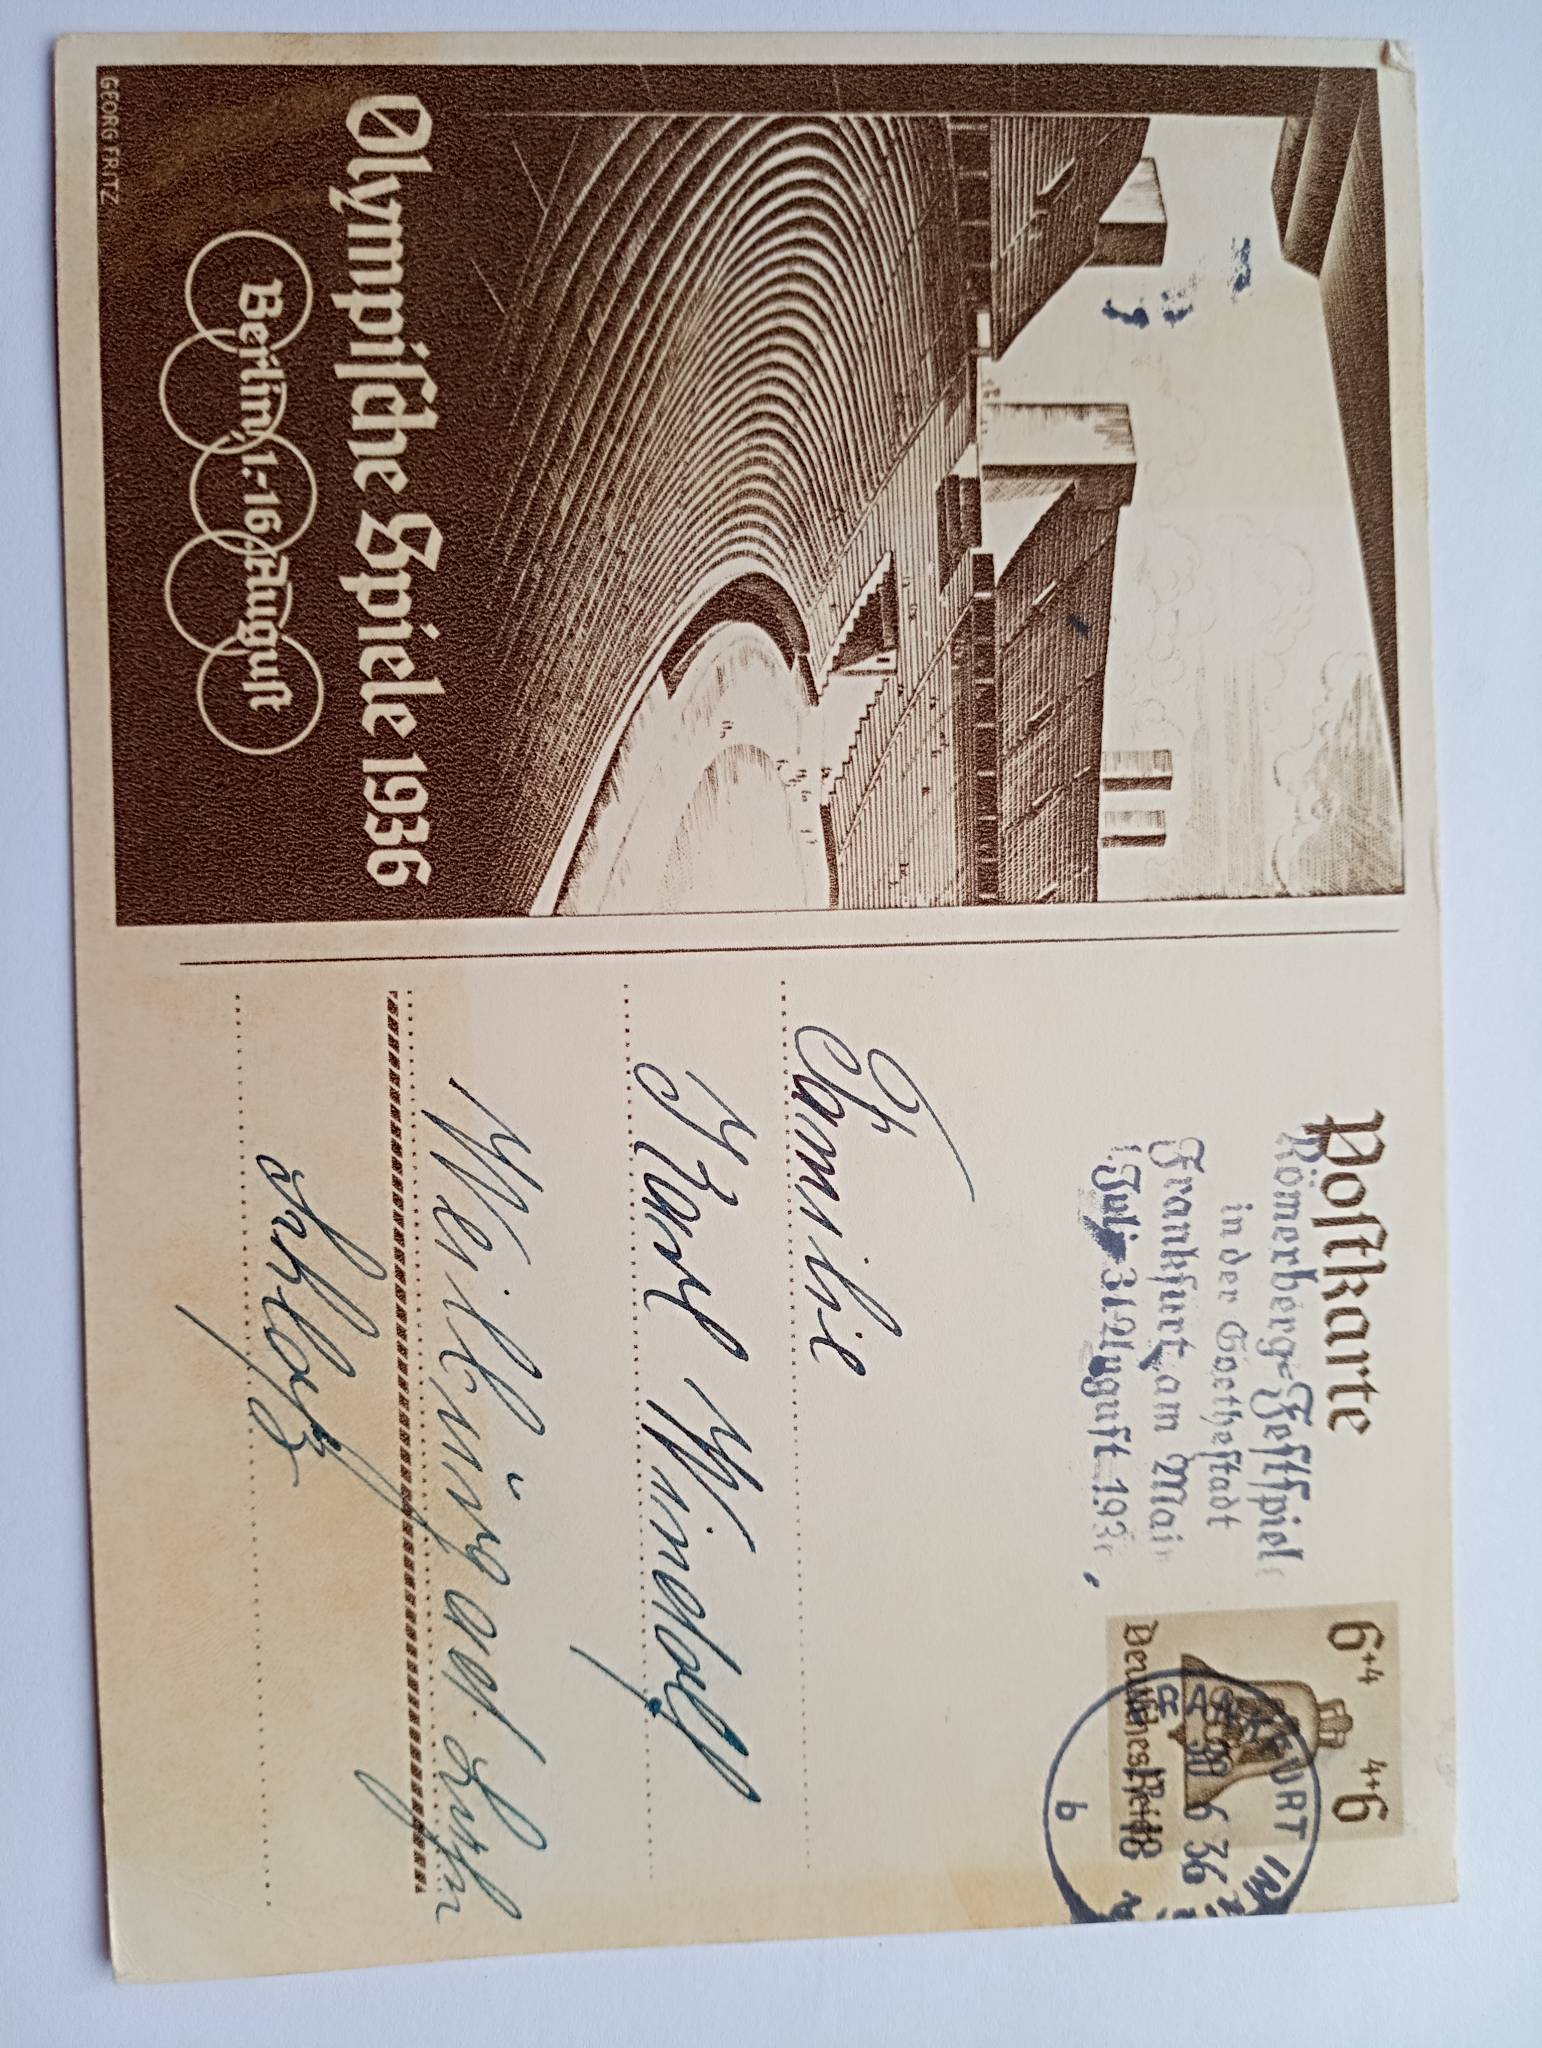 Olympiſche Spiele 1936
Berlin, 1.-16. Auguſt
GEORG FRITZ
Poſtkarte
Römerberg-Feſtſpiele
in der Goetheſtadt
Frankfurt am Main
1. Juli-31. Auguſt 193
6+4 4+6
Deutſches Reich
FRANKFURT (MAIN)
30 6 36
18
b
Familie
Karl Windolf
Schloß